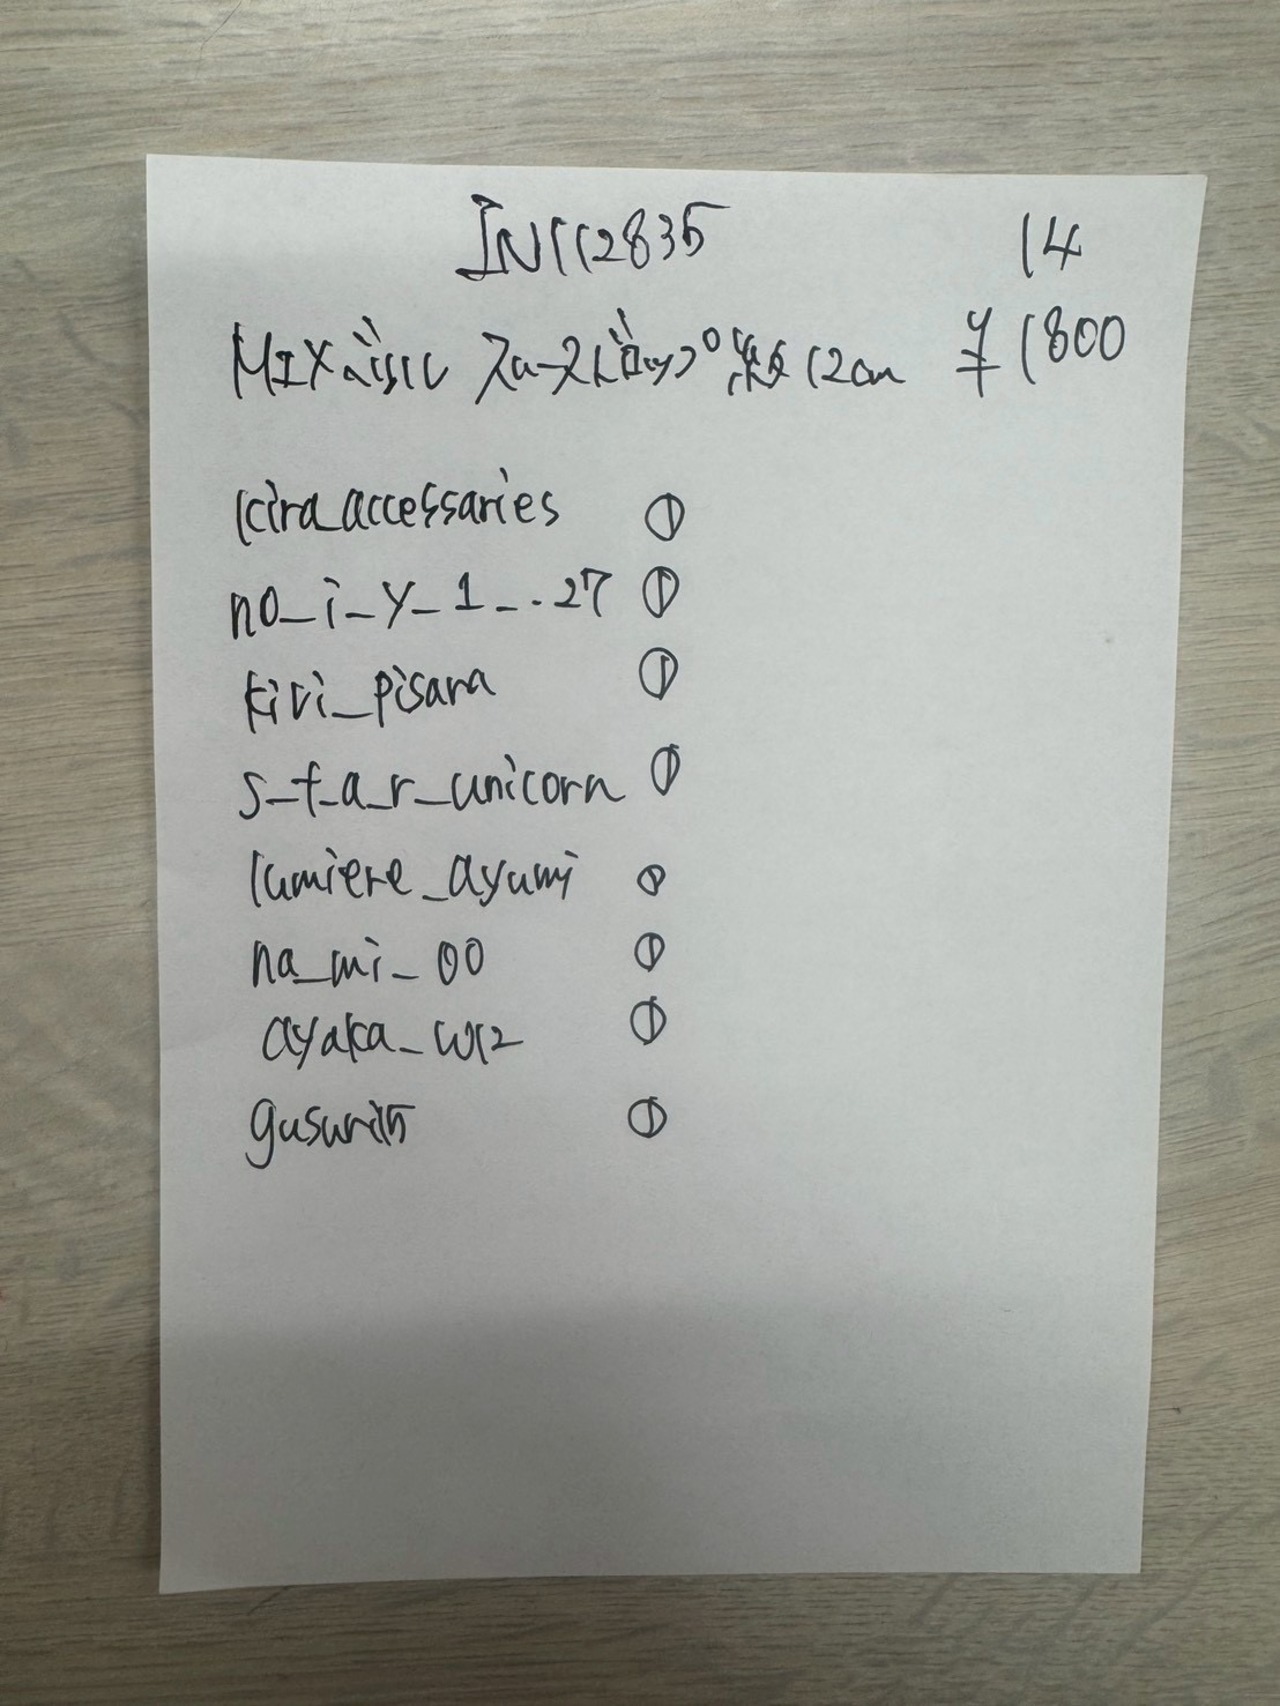 IN112835 14
MIXベリル スースドロップ 約12cm ¥1800
kira_accessaries ①
no_i_y_1_.27 ①
kivi_pisara ①
s_t_a_r_unicorn ①
lumiere_ayumi ①
na_mi_00 ①
ayaka_w12 ①
①